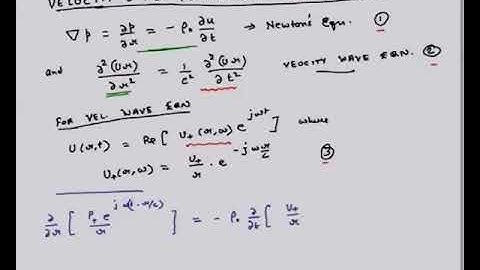 ∇p = ∂p/∂r = -ρ₀ ∂u/∂t → Newton's Equ. ①
and ∂²(Ur)/∂r² = 1/c² ∂²(Ur)/∂t² VELOCITY WAVE EQN. ②
FOR VEL. WAVE EQN
U(r,t) = Re[ U₊(r,ω) e^{jωt} ] where
U₊(r,ω) = U₊/r · e^{-jωr/c} ③
∂/∂r [ P₊ e^{jω(t-r/c)}/r ] = -ρ₀ ∂/∂t [ U₊/r